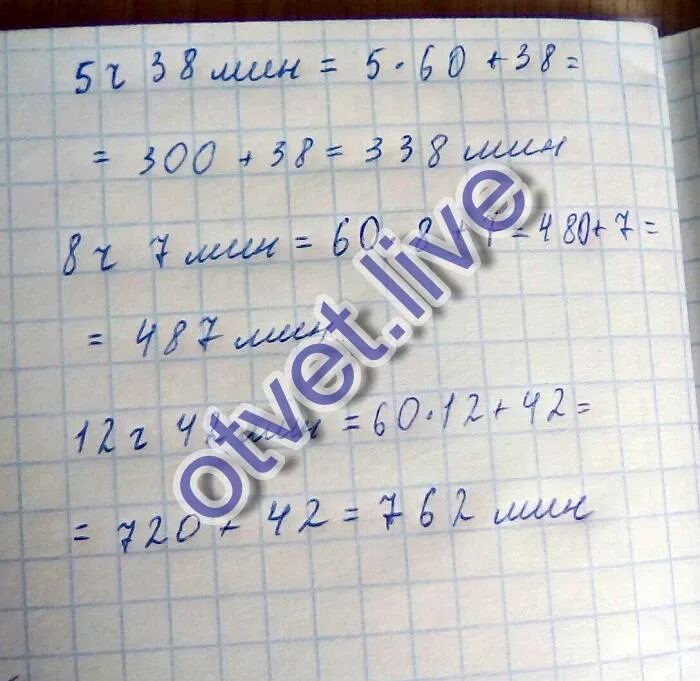 5 ч 38 мин = 5·60+38=
= 300+38=338 мин
8 ч 7 мин = 60 8 + = 480+7=
= 487 мин
12 ч 42 мин = 60·12+42=
= 720+42=762 мин
otvet.live